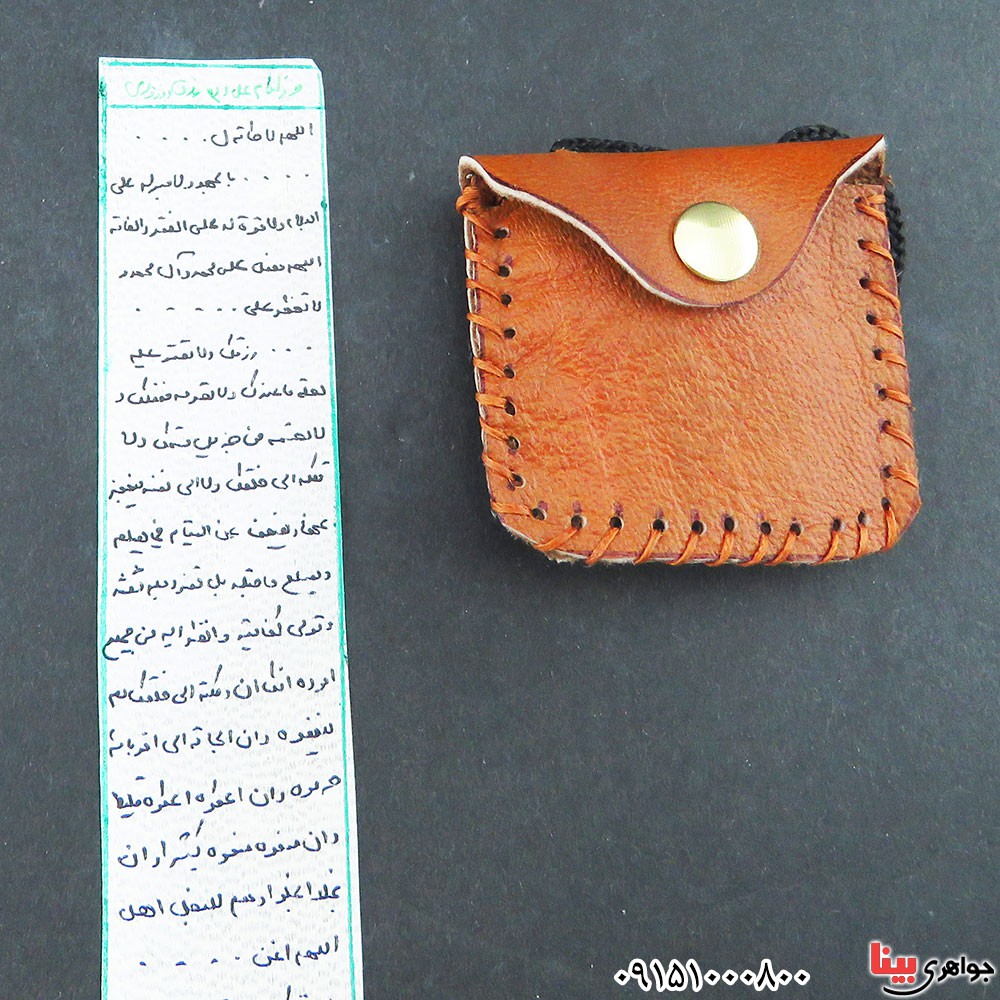 اللهم لا طاقه ل . . . .
. . . . . با مجهود ولا صبر له علی
البلاء ولا قوة له علی الفقر والفاقه
اللهم فصل علی محمد وآل محمد و
لا تحظر علی . . . . .
. . . . رزقک ولا تقتر علیه
سعة ما عندک ولا تحرمه فضلک و
لا تحسمه من جزیل قسمک ولا
تکله الی خلقک ولا الی نفسه فیعجز
عنها و یضعف عن القیام فی یصلحه
و یصلح ما قبله بل تفرد بلم شعثه
و تولی کفایته وانظر الیه فی جمیع
اموره انک ان وکلته الی خلقک لم
ینفعوه وان الجاته الی اقربائه
حرموه وان اعطوه اعطوه قلیلا
وان منعوه منعوه کثیرا وان
بخلوا بخلوا وهم للبخل اهل
اللهم اغن . . . . .
جواهری بینا
۰۹۱۵۱۰۰۰۸۰۰